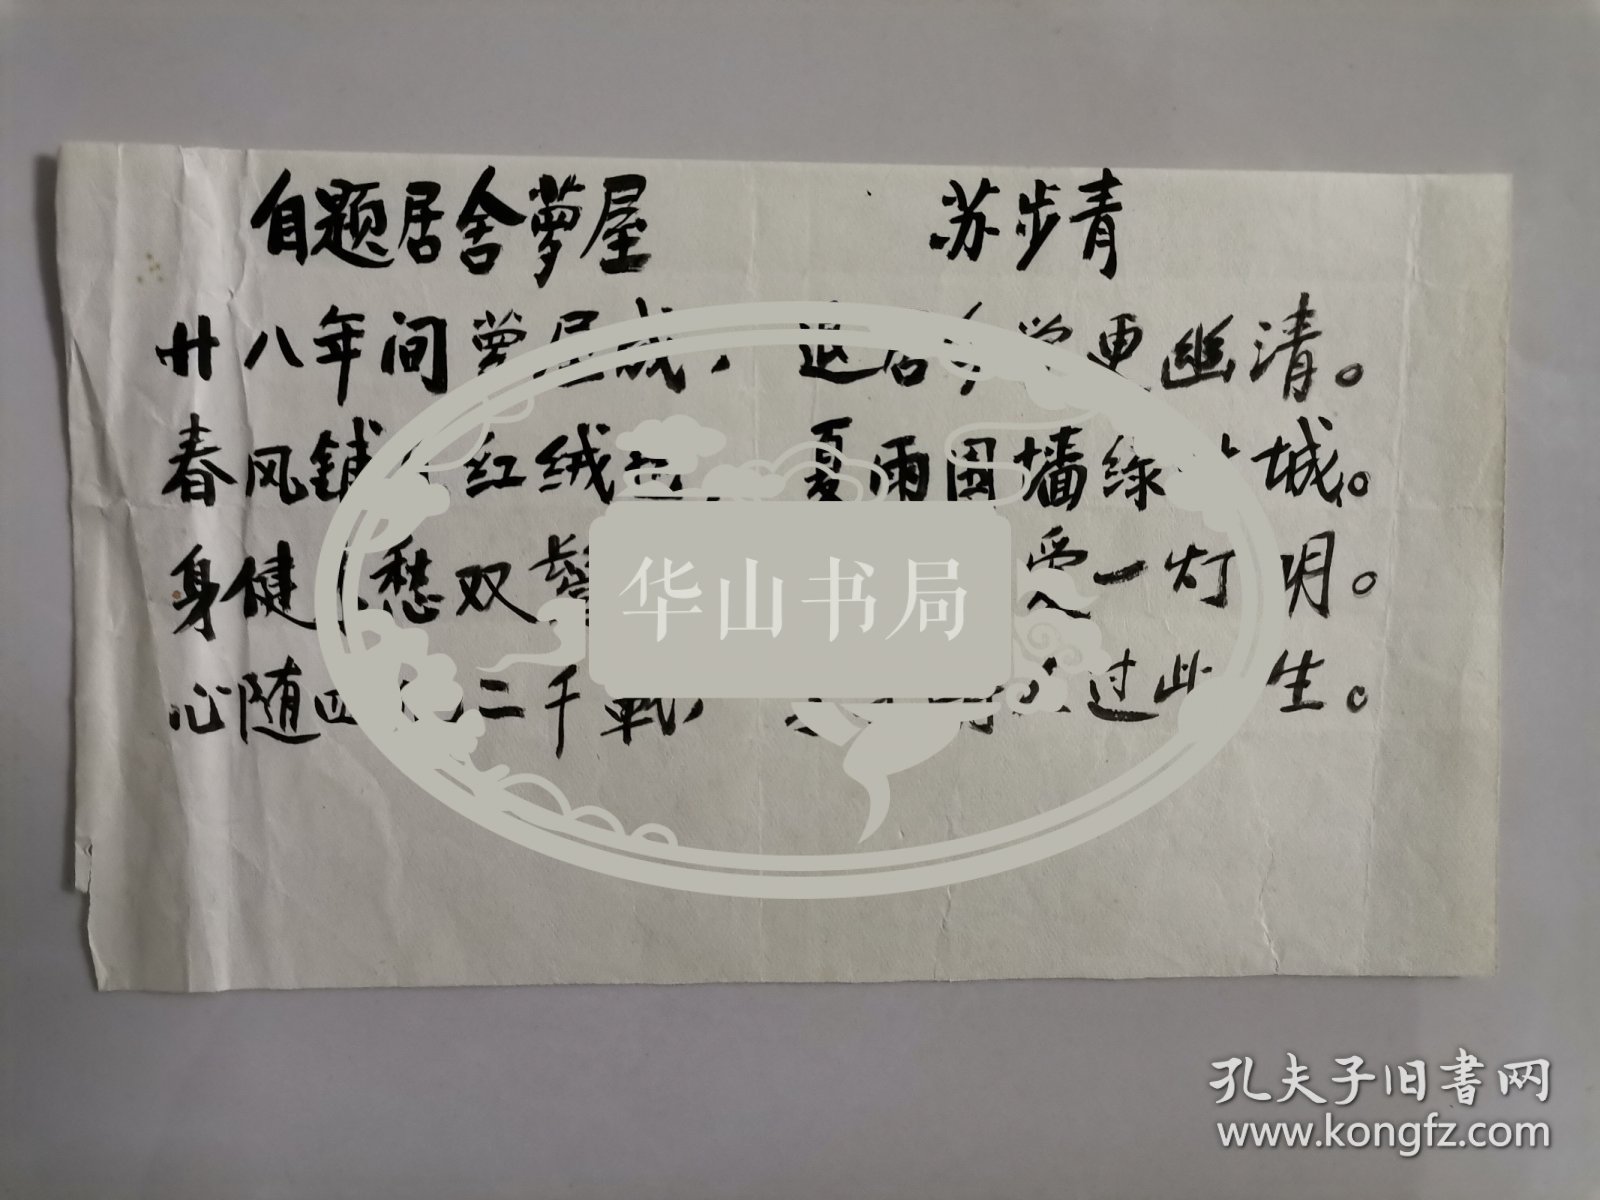 自题居舍萝屋 苏步青
廿八年间萝屋成，退居更幽清。
春风铺红绒，夏雨围墙绿城。
身健愁双鬓爱一灯明。
心随四二千载，过此生。
华山书局
孔夫子旧书网
www.kongfz.com